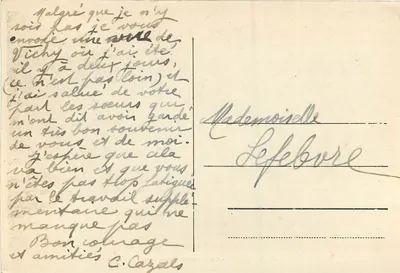 Malgré que je n'y
sois pas je vous
envoie une vue de
Vichy où j'ai été
il y a deux jours,
(ce n'est pas loin) et
j'ai salué de votre
part les sœurs qui
m'ont dit avoir gardé
un très bon souvenir
de vous et de moi.
J'espère que cela
va bien et que vous
n'êtes pas trop fatiguée
par le travail supplé-
mentaire qui ne
manque pas
Bon courage
et amitiés
C. Cazals
Mademoiselle
Lefebvre